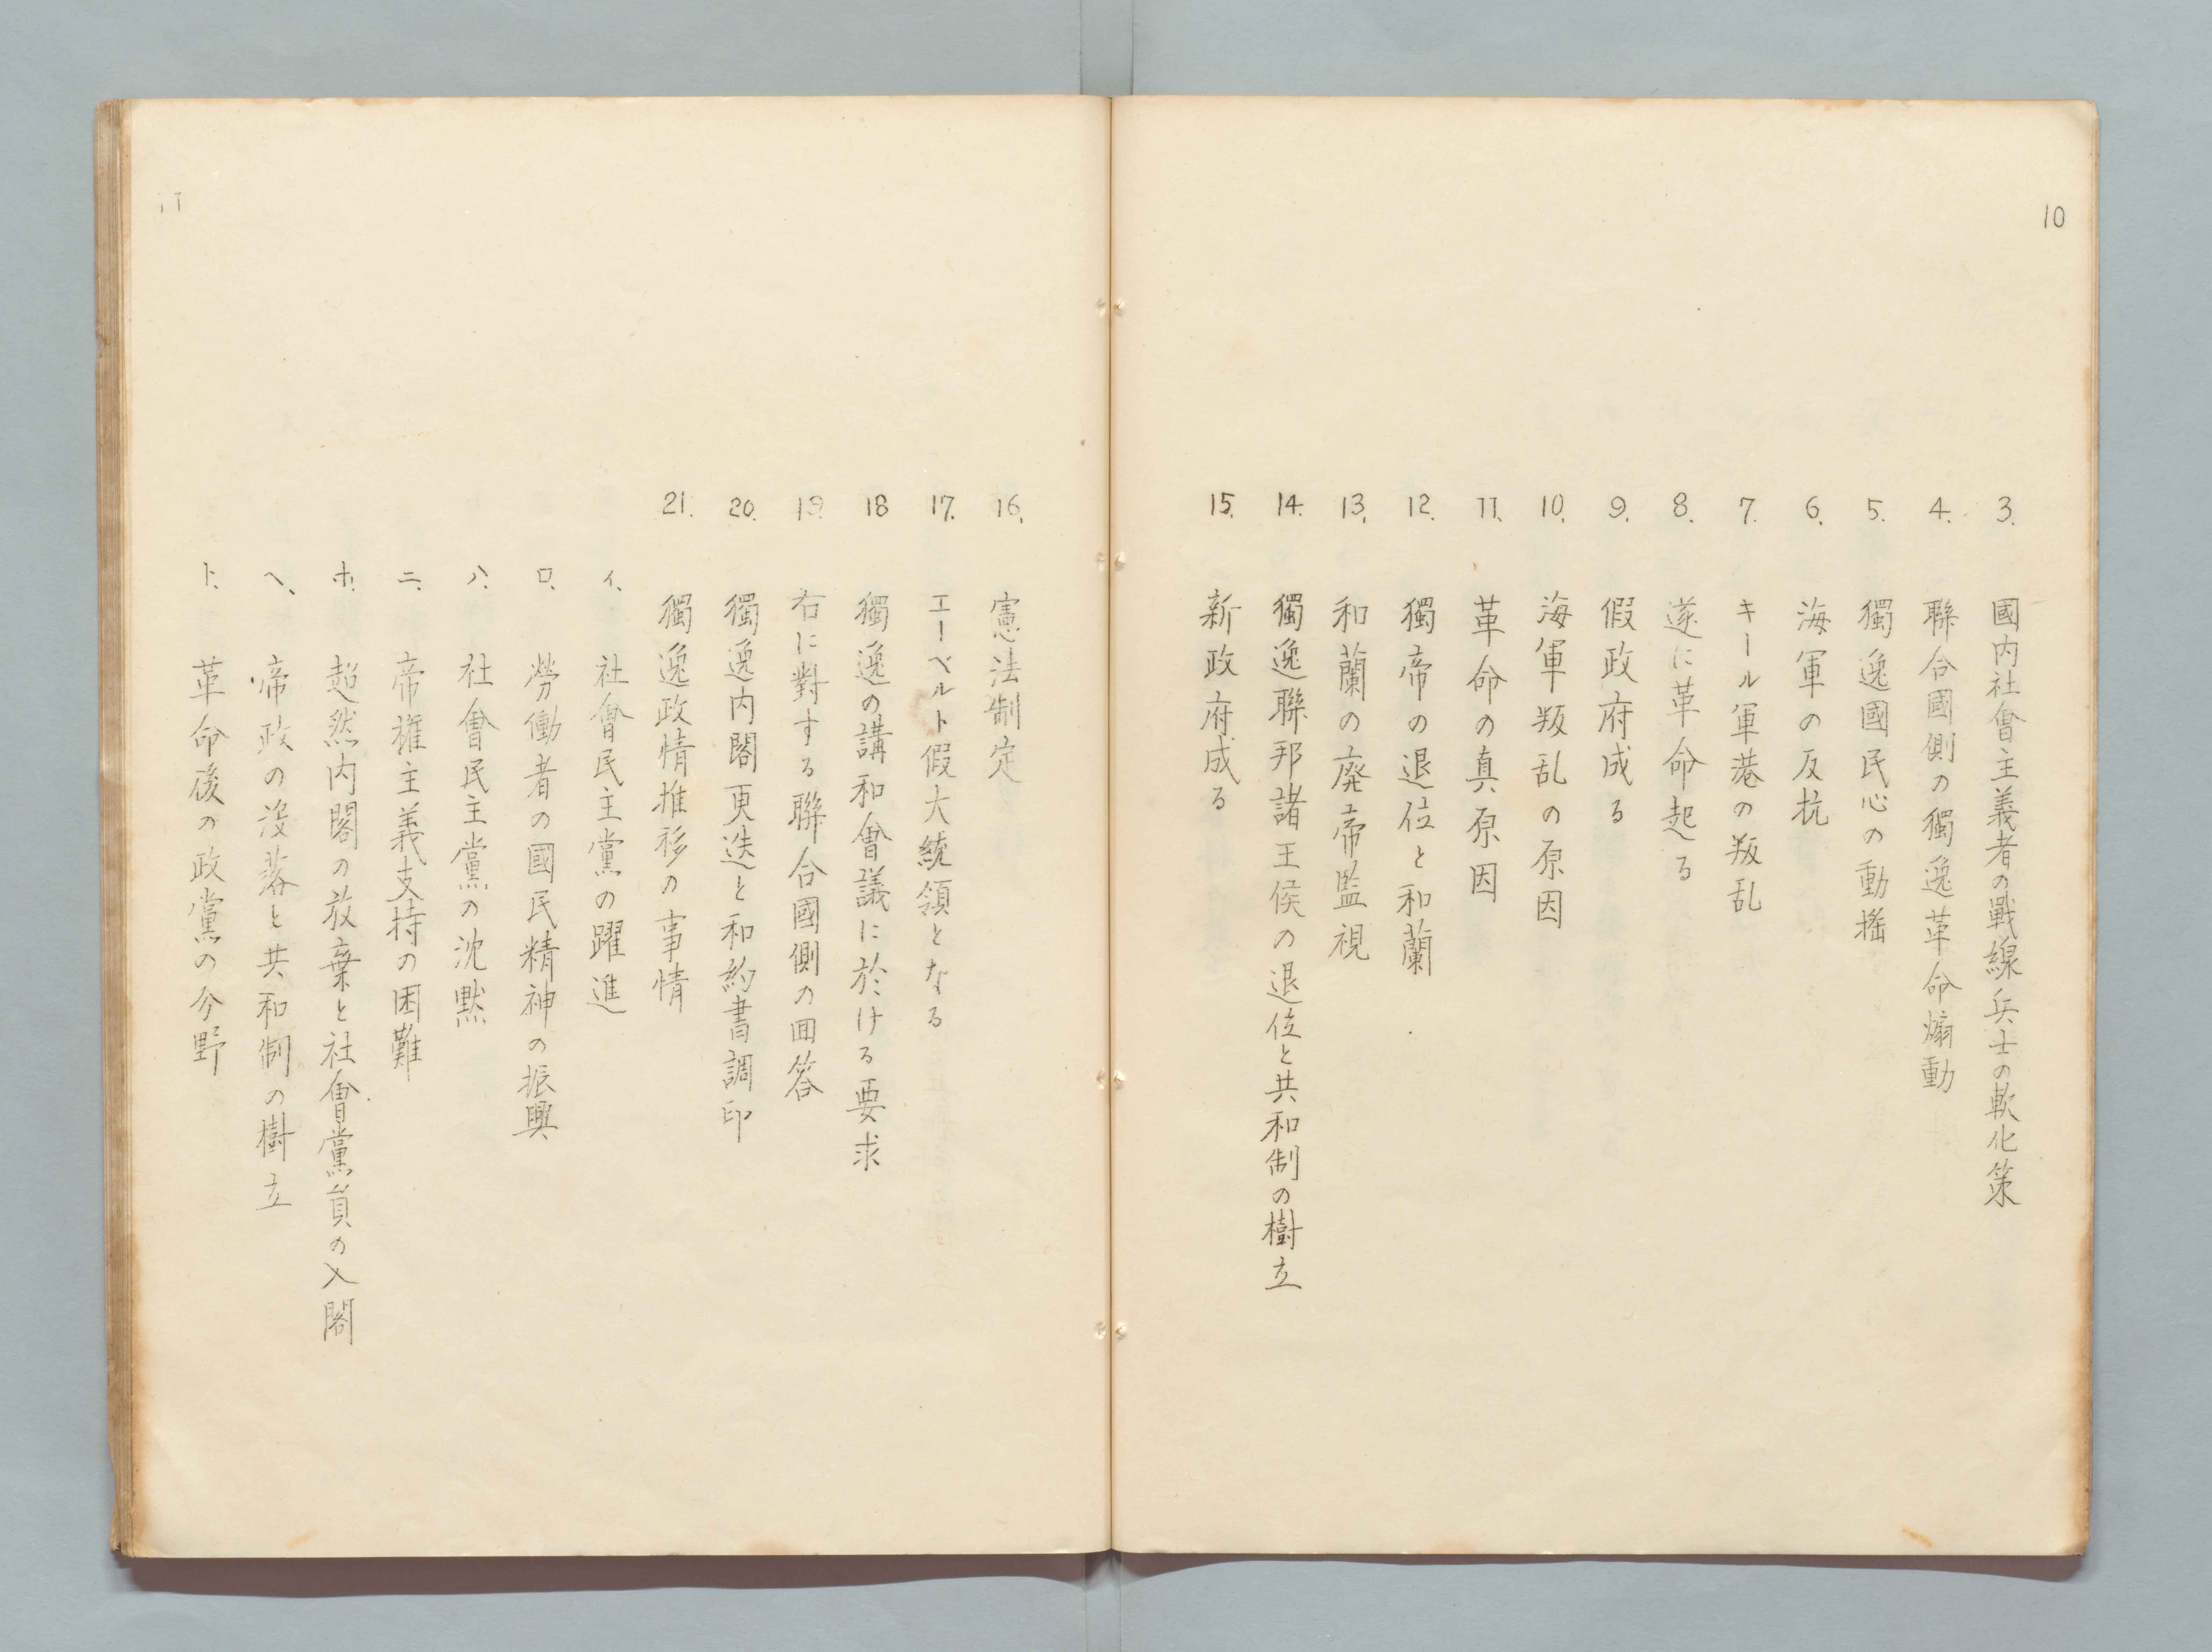 10
3. 國内社會主義者の戰線兵士の軟化策
4. 聯合國側の獨逸革命煽動
5. 獨逸國民心の動搖
6. 海軍の反抗
7. キール軍港の叛乱
8. 遂に革命起る
9. 假政府成る
10. 海軍叛乱の原因
11. 革命の真原因
12. 獨帝の退位と和蘭
13. 和蘭の廃帝監視
14. 獨逸聯邦諸王侯の退位と共和制の樹立
15. 新政府成る
16. 憲法制定
17. エーベルト假大統領となる
18 獨逸の講和會議に於ける要求
19. 右に對する聯合國側の回答
20. 獨逸内閣更迭と和約書調印
21. 獨逸政情推移の事情
イ、社會民主黨の躍進
ロ、勞働者の國民精神の振興
ハ、社會民主黨の沈黙
ニ、帝權主義支持の困難
ホ、超然内閣の放棄と社會黨員の入閣
ヘ、帝政の沒落と共和制の樹立
ト、革命後の政黨の分野
11